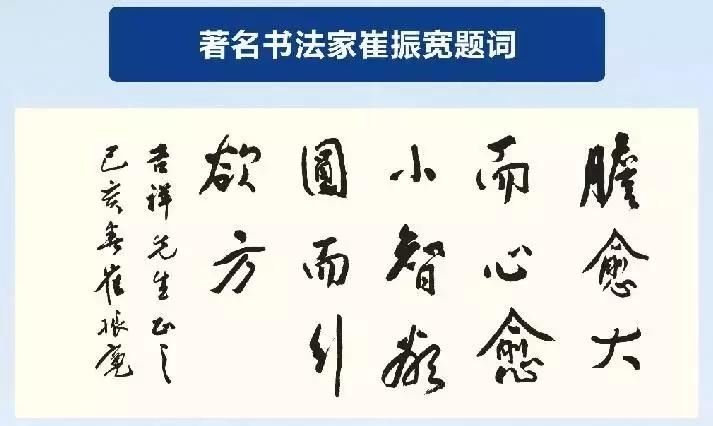 著名书法家崔振宽题词
膽愈大
而心愈
小智欲
圓而行
欲方
吉祥先生正之
己亥春崔振寬